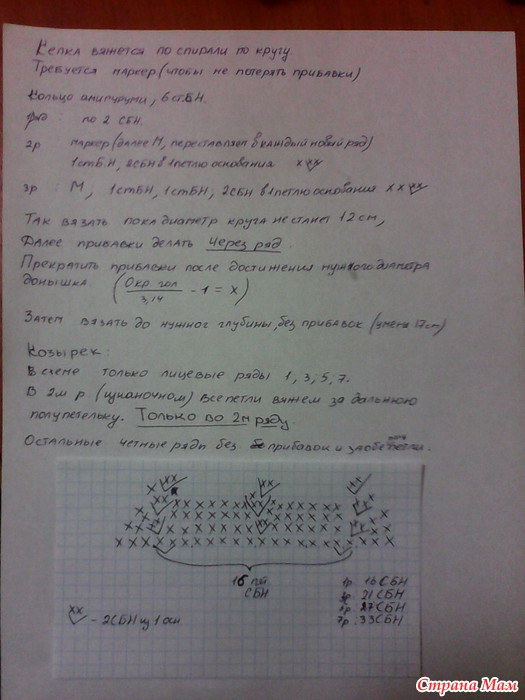 Кепка вяжется по спирали по кругу.
Требуется маркер (чтобы не потерять прибавки)
Кольцо амигуруми, 6 ст.БН.
ряд : по 2 СБН.
2р маркер (далее М, переставляем в каждый новый ряд)
1стБН, 2СБН в 1 петлю основания х хх
3р : М, 1стБН, 1стБН, 2СБН в 1 петлю основания х х хх
Так вязать пока диаметр круга не станет 12 см,
Далее прибавки делать через ряд.
Прекратить прибавки после достижения нужного диаметра
донышка (Окр гол / 3,14 - 1 = х)
Затем вязать до нужног глубины, без прибавок (у меня 17см)
Козырек:
В схеме только лицевые ряды 1, 3, 5, 7.
В 2м р (изнаночном) все петли вяжем за дальнюю
полупетельку. Только во 2м ряду.
Остальные четные ряды без прибавок и за обе петли.
16 пет
СБН
1р 16 СБН
3р 21 СБН
5р 27 СБН
7р 33 СБН
хх - 2СБН из 1 осн
Страна Мам